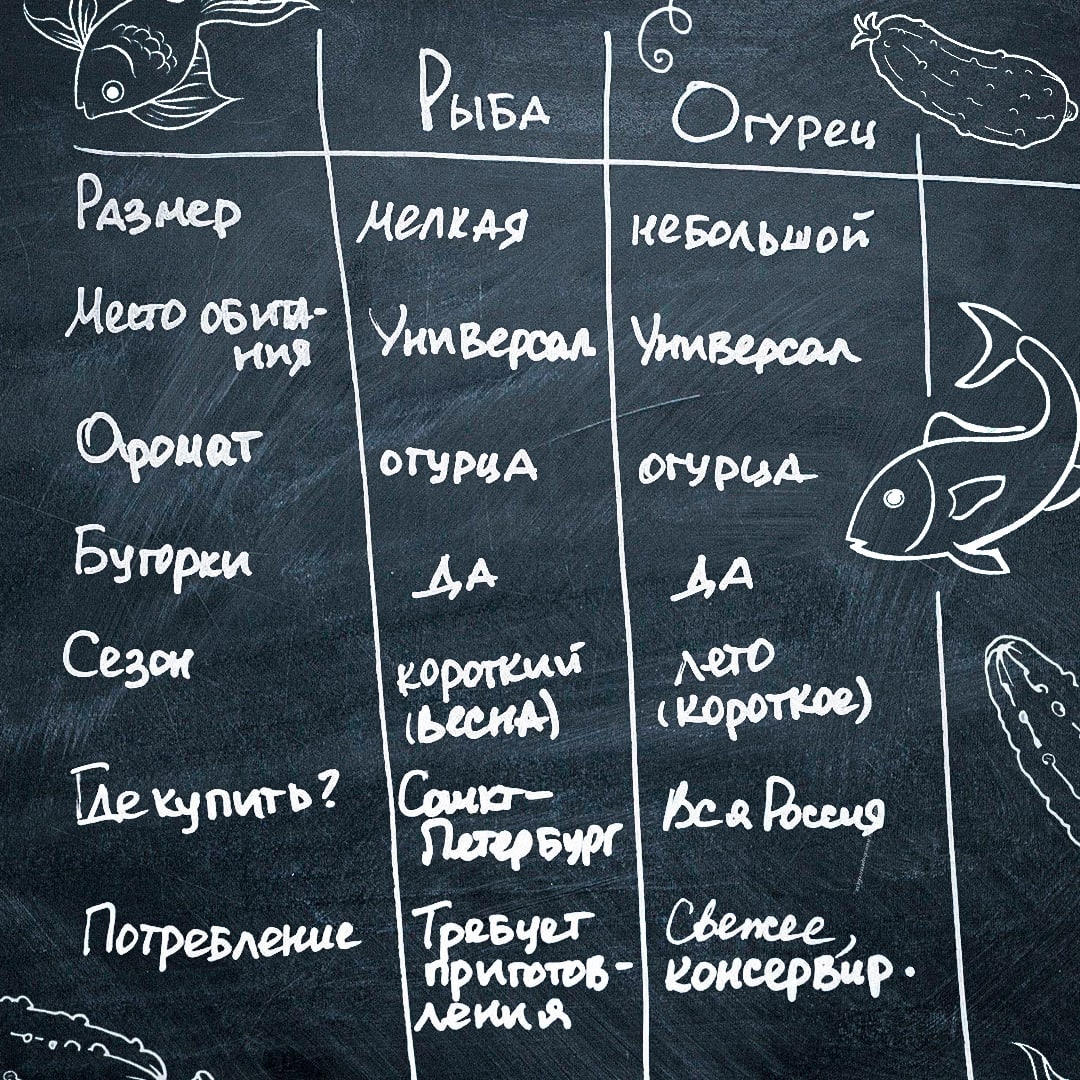 Рыба
Огурец
Размер
мелкая
небольшой
Место обита-
ния
Универсал
Универсал
Аромат
огурца
огурца
Бугорки
Да
Да
Сезон
короткий
(весна)
лето
(короткое)
Где купить?
Санкт-
Петербург
Вся Россия
Потребление
Требует
приготов-
ления
Свежее,
консервир.